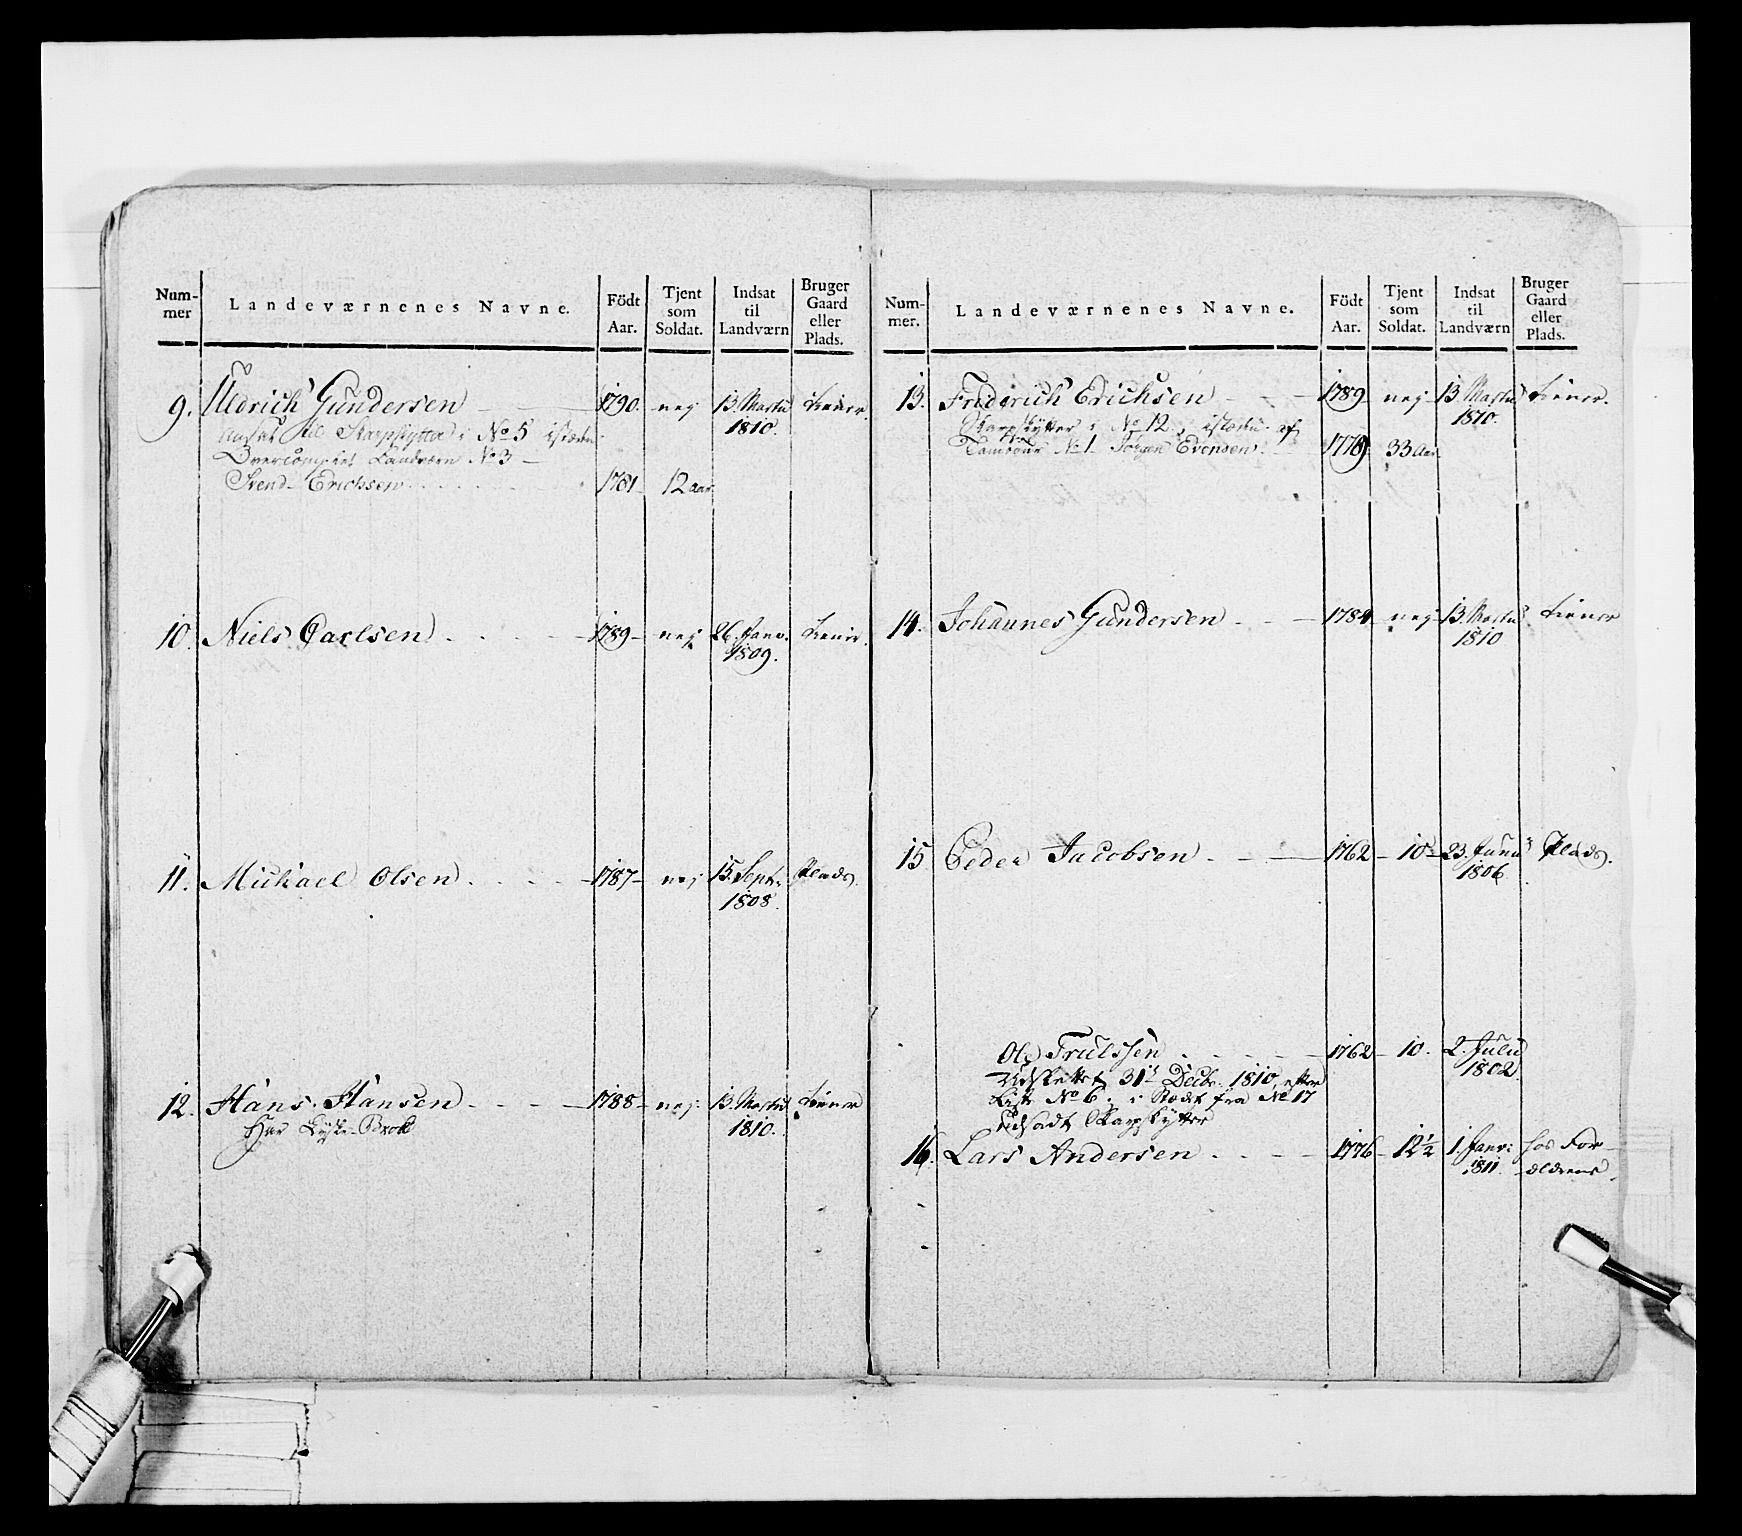 Num-
mer
Landeværnenes Navne.
Födt
Aar.
Tjent
som
Soldat.
Indsat
til
Landværn
Bruger
Gaard
eller
Plads.
9. Uldrich Gundersen 1790. nej 13 Martii Tiener.
1810.
Ansat til Skarpskytter i No 5 istæden
Overcomplet Landværn No 3
Svend Erichsen 1781 12 aar
10. Niels Carlsen 1789 nej 26. Janv. Tiener.
1809.
11. Michael Olsen 1787 nej 15. Septr. Plads.
1808.
12. Hans Hansen 1788 nej 13. Martii Tiener
1810.
Har Brok
Num-
mer.
Landeværnenes Navne.
Födt
Aar.
Tjent
som
Soldat.
Indsat
til
Landværn
Bruger
Gaard
eller
Plads.
13. Friderich Erichsen 1789 nej 13 Martii Tiener.
1810.
Skarpskytter i No 12, istæden af
Tambour No 1 Evensen 1778 33 Aar
14. Johannes Gundersen 1784 nej 13 Martii Tiener
1810
15. Peder Jacobsen 1762 10 23. Junii Plads.
1806
Ole Trulssen 1762 10. 2. Julii
1802
Udslettet 31te Decbr. 1810, efter
Liste No 6, i Stædt fra No 17
Udsadt Skarpskytter
16. Lars Andersen 1776 12 1/2 1. Janv: hos For-
1811. ældrene.